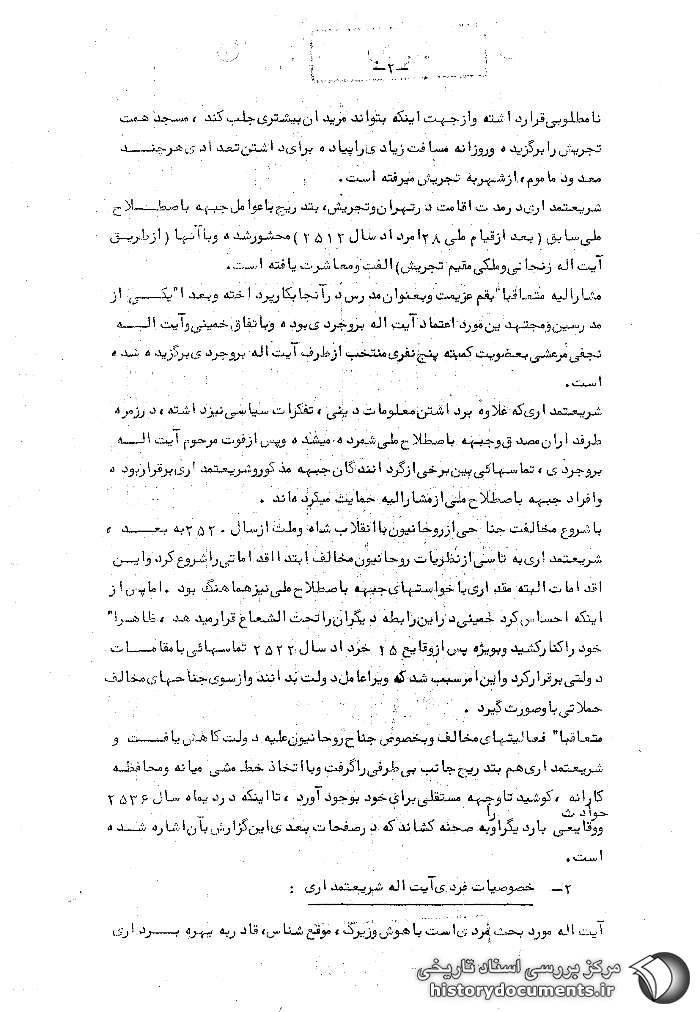 -۲-
نامطلوبی قرار داشته و از جهت اینکه بتواند مریدان بیشتری جلب کند ، مسجد همت
تجریش را برگزیده و روزانه مسافت زیادی را پیاده برای داشتن تعدادی هرچند
معدود ماموم، از شهر به تجریش میرفته است.
شریعتمداری در مدت اقامت در تهران و تجریش، بتدریج با عوامل جبهه باصطلاح
ملی سابق ( بعد از قیام ملی ۲۸ امرداد سال ۲۵۱۲ ) محشور شده و با آنها ( از طریق
آیت اله زنجانی و ملکی مقیم تجریش) الفت و معاشرت یافته است.
مشارالیه متعاقبا" بقم عزیمت و بعنوان مدرس در آنجا بکار پرداخته و بعدا" یکی از
مدرسین و مجتهدین مورد اعتماد آیت اله بروجردی بوده و باتفاق خمینی و آیت اله
نجفی مرعشی بعضویت کمیته پنج نفری منتخب از طرف آیت اله بروجردی برگزیده شده
است.
شریعتمداری که علاوه بر داشتن معلومات دینی ، تفکرات سیاسی نیز داشته ، در زمره
طرفداران مصدق و جبهه باصطلاح ملی شمرده میشده و پس از فوت مرحوم آیت اله
بروجردی ، تماسهائی بین برخی از گردانندگان جبهه مذکور و شریعتمداری برقرار بوده
و افراد جبهه باصطلاح ملی از مشارالیه حمایت میکرده‌اند .
با شروع مخالفت جناحی از روحانیون با انقلاب شاه و ملت از سال ۲۵۲۰ به بعد ،
شریعتمداری به تاسی از نظریات روحانیون مخالف ابتدا اقداماتی را شروع کرد و این
اقدامات البته مقداری با خواستهای جبهه باصطلاح ملی نیز هماهنگ بود . اما پس از
اینکه احساس کرد خمینی در این رابطه دیگران را تحت الشعاع قرار میدهد ، ظاهرا"
خود را کنار کشید و بویژه پس از وقایع ۱۵ خرداد سال ۲۵۲۲ تماسهائی با مقامات
دولتی برقرار کرد و این امر سبب شد که ویرا عامل دولت بدانند و از سوی جناحهای مخالف
حملاتی باو صورت گیرد .
متعاقبا" فعالیتهای مخالف و بخصوص جناح روحانیون علیه دولت کاهش یافت و
شریعتمداری هم بتدریج جانب بی طرفی را گرفت و با اتخاذ خط مشی میانه و محافظه
کارانه ، کوشید تا وجهه مستقلی برای خود بوجود آورد ، تا اینکه در دیماه سال ۲۵۳۶
حوادث را
و وقایعی بار دیگر او به صحنه کشاند که در صفحات بعدی این گزارش بآن اشاره شده
است.
۲- خصوصیات فردی آیت اله شریعتمداری :
آیت اله مورد بحث فردی است با هوش و زیرک ، موقع شناس، قادر به بهره برداری
مرکز بررسی اسناد تاریخی
historydocuments.ir